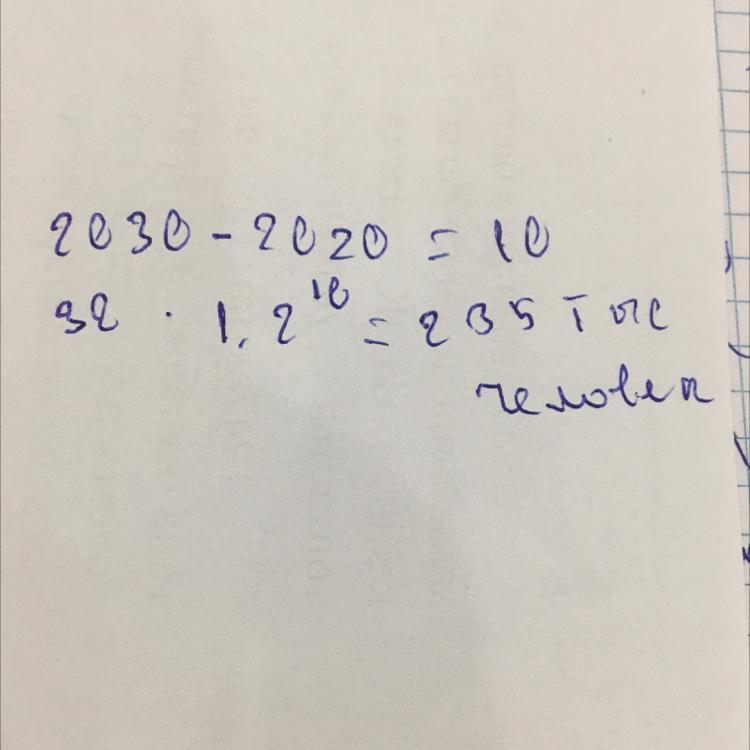 2030 - 2020 = 10
32 · 1.2^10 = 235 тыс
человек